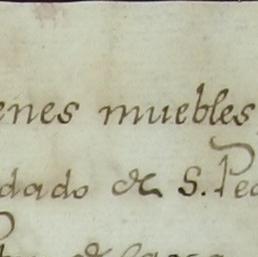 enes muebles
dado de S. Pe